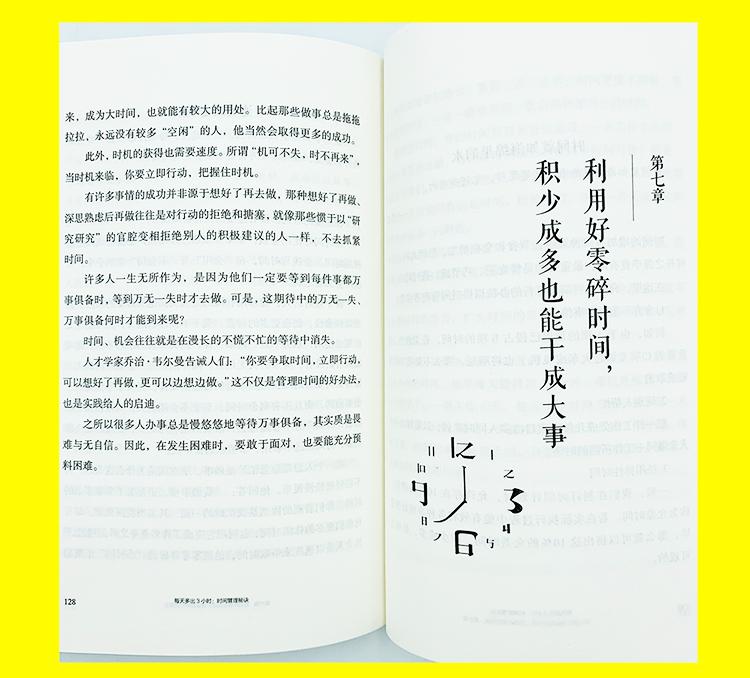 来，成为大时间，也就能有较大的用处。比起那些做事总是拖拖
拉拉，永远没有较多“空闲”的人，他当然会取得更多的成功。
此外，时机的获得也需要速度。所谓“机可不失，时不再来”，
当时机来临，你要立即行动，把握住时机。
有许多事情的成功并非源于想好了再去做，那种想好了再做、
深思熟虑后再做往往是对行动的拒绝和搪塞，就像那些惯于以“研
究研究”的官腔变相拒绝别人的积极建议的人一样，不去抓紧
时间。
许多人一生无所作为，是因为他们一定要等到每件事都万
事俱备时，等到万无一失时才去做。可是，这期待中的万无一失、
万事俱备何时才能到来呢？
时间、机会往往就是在漫长的不慌不忙的等待中消失。
人才学家乔治·韦尔曼告诫人们：“你要争取时间，立即行动，
可以想好了再做，更可以边想边做。”这不仅是管理时间的好办法，
也是实践给人的启迪。
之所以很多人办事总是慢悠悠地等待万事俱备，其实质是畏
难与无自信。因此，在发生困难时，要敢于面对，也要能充分预
料困难。
128
每天多出3小时：时间管理秘诀
第七章
利用好零碎时间，
积少成多也能干成大事